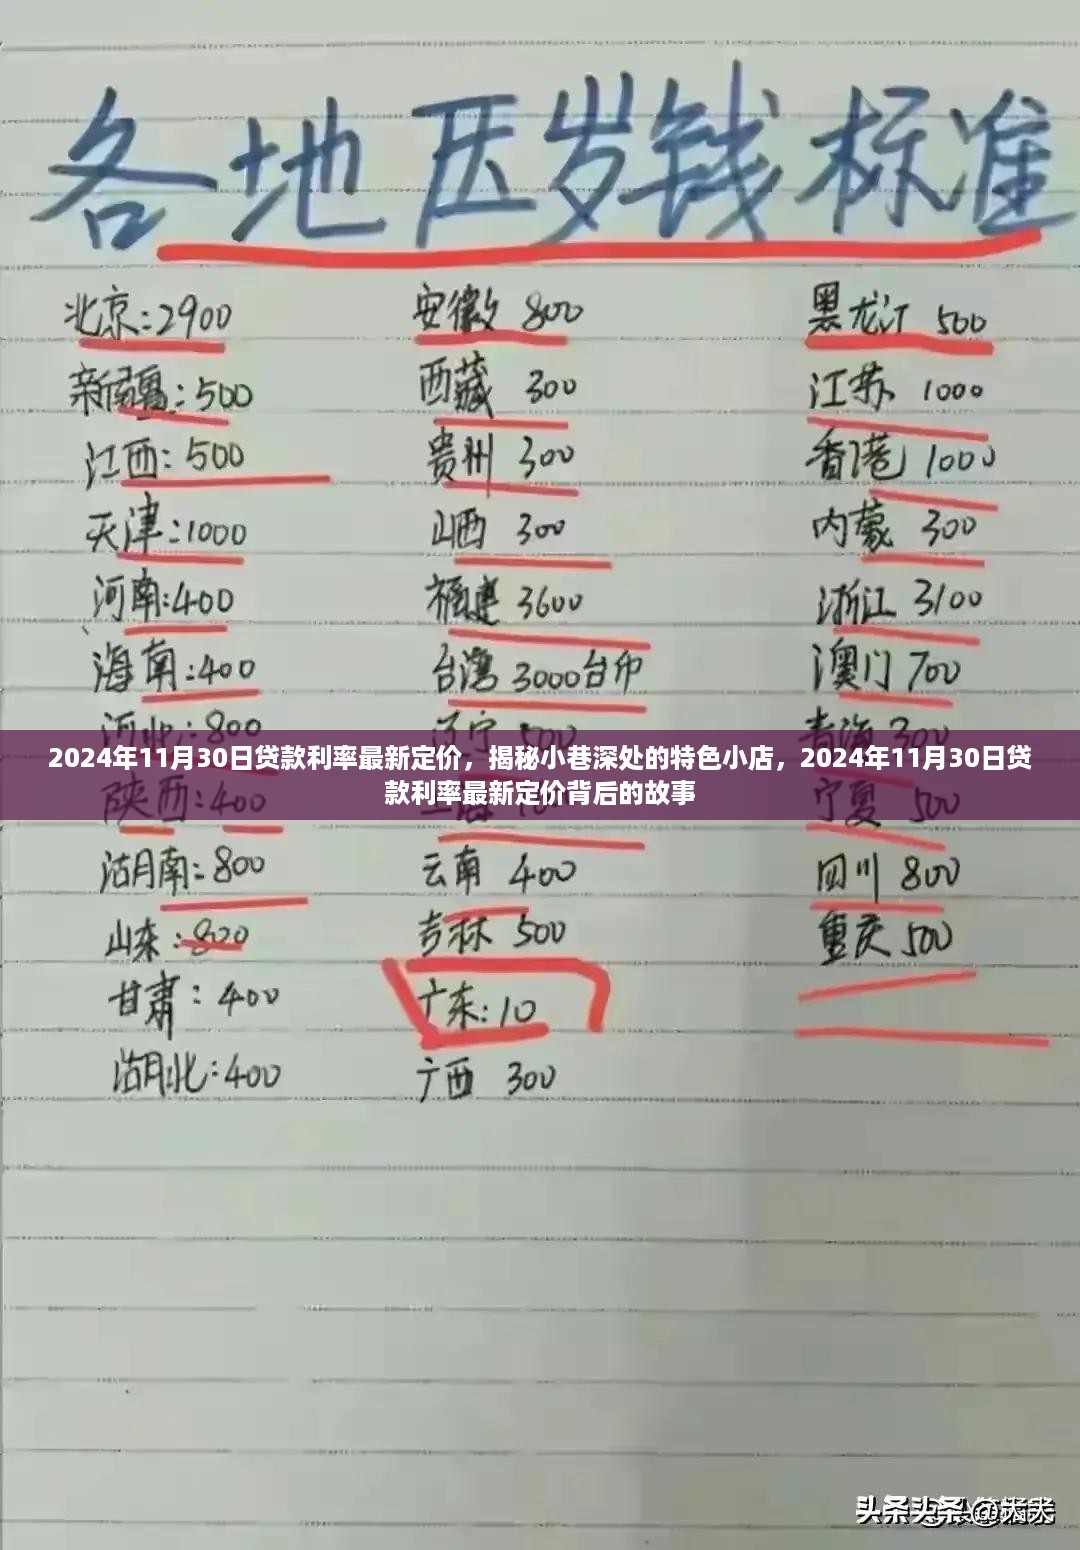 各地压岁钱标准
北京:2900 安徽 800 黑龙江 500
新疆:500 西藏 300 江苏 1000
江西:500 贵州 300 香港 1000
天津:1000 山西 300 内蒙 300
河南:400 福建 3600 浙江 3100
海南:400 台湾 3000台币 澳门 700
河北:800 辽宁 500 青海 300
2024年11月30日贷款利率最新定价，揭秘小巷深处的特色小店，2024年11月30日贷
款利率最新定价背后的故事
陕西:400 宁夏 500
湖南:800 云南 400 四川 800
山东:800 吉林 500 重庆 500
甘肃:400 广东:10
湖北:400 广西 300
头条头条